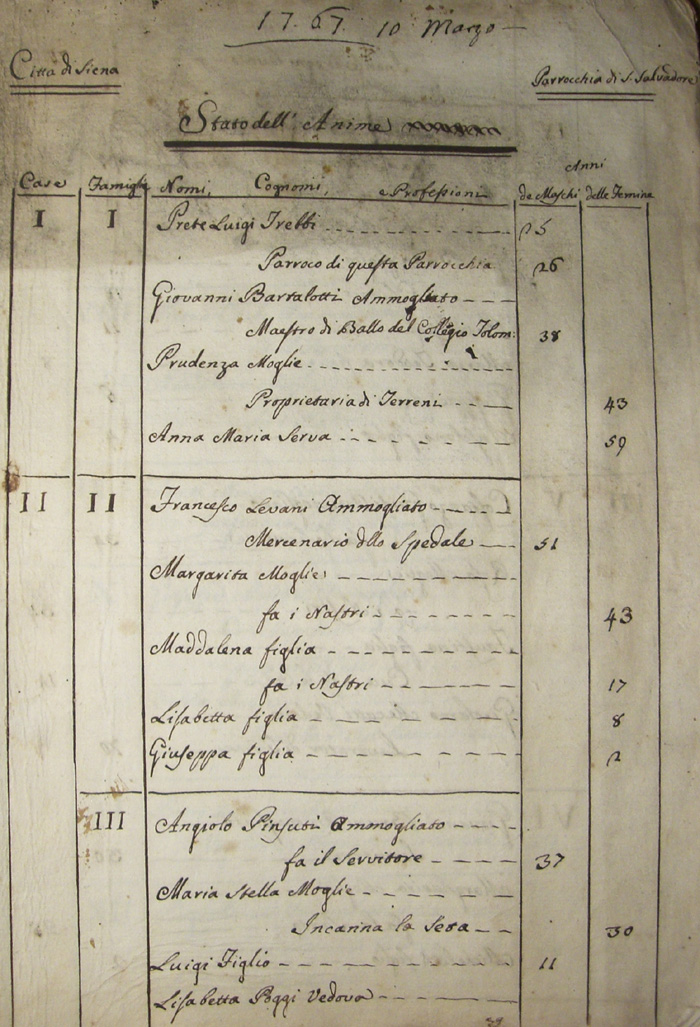 1767. 10 Marzo
Città di Siena
Parrocchia di S. Salvadore
Stato dell' Anime
Anni
Case Famiglie Nomi, Cognomi, e Professioni de Maschi delle Femine
I I Prete Luigi Trebbi 25
Parroco di questa Parrocchia 26
Giovanni Bartalotti Ammogliato
Maestro di Ballo del Collegio Tolom: 38
Prudenza Moglie
Proprietaria di Terreni 43
Anna Maria Serva 59
II II Francesco Levani Ammogliato
Mercenario dllo Spedale 51
Margarita Moglie
fa i Nastri 43
Maddalena figlia
fa i Nastri 17
Lisabetta figlia 8
Giuseppa figlia 2
III Angiolo Pinsuti Ammogliato
fa il Servitore 37
Maria Stella Moglie
Incanna la Seta 30
Luigi Figlio 11
Lisabetta Poggi Vedova